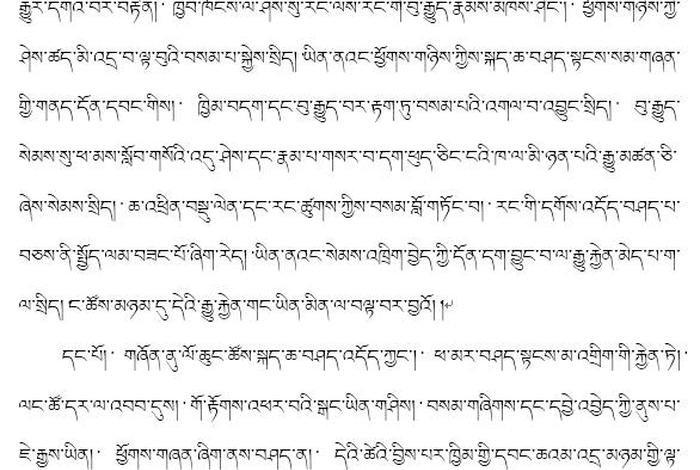 རྒྱུར་དགའ་བར་བརྟེན། ཁྱབ་ཁོངས་ལ་ཤས་སུ་རང་ལས་རང་གི་བུ་རྒྱུད་རྣམས་མཁས་ཤིང་། ཕྱོགས་གཉིས་ཀྱི་
ཤེས་ཚད་མི་འདྲ་བ་ལྟ་བུའི་བསམ་པ་སྐྱེས་སྲིད། ཡིན་ནའང་ཕྱོགས་གཉིས་ཀྱིས་སྐད་ཆ་བཤད་སྟངས་སམ་གཞན་
གྱི་གནད་དོན་དབང་གིས། ཁྱིམ་བདག་དང་བུ་རྒྱུད་བར་རྟག་ཏུ་བསམ་པའི་འགལ་བ་འབྱུང་སྲིད། བུ་རྒྱུད་
སེམས་སུ་ཕ་མས་སློབ་གསོའི་འདུ་ཤེས་དང་རྣམ་པ་གསར་བ་དག་ཕུད་ཅིང་ངའི་ཁ་ལ་མི་ཉན་པའི་རྒྱུ་མཚན་ཅི་
ཞེས་སེམས་སྲིད། ཆ་འཕྲིན་བསྡུ་ལེན་དང་རང་ཚུགས་ཀྱིས་བསམ་བློ་གཏོང་བ། རང་གི་དགོས་འདོད་བཤད་པ་
བཅས་ནི་སྤྱོད་ལམ་བཟང་པོ་ཞིག་རེད། ཡིན་ནའང་སེམས་འཁྲིག་བྱེད་ཀྱི་དོན་དག་བྱུང་བ་ལ་རྒྱུ་རྐྱེན་མེད་པ་ག་
ལ་སྲིད། ང་ཚོས་མཉམ་དུ་དེའི་རྒྱུ་རྐྱེན་གང་ཡིན་མིན་ལ་བལྟ་བར་བྱའོ། །
དང་པོ། གཞོན་ནུ་ལོ་ཆུང་ཚོས་སྐད་ཆ་བཤད་འདོད་ཀྱང་། ཕ་མར་བཤད་སྟངས་མ་འགྲིག་གི་རྐྱེན་ཏེ།
ལང་ཚོ་དར་ལ་འབབ་དུས། གོ་རྟོགས་འཕར་བའི་སྐང་ཡིན་གཤིས། བསམ་གཞིགས་དང་དབྱེ་འབྱེད་ཀྱི་ནུས་པ་
ཇེ་རྒྱས་ཡིན། ཕྱོགས་གཞན་ཞིག་ནས་བཤད་ན། དེའི་ཚེའི་བྱིས་པར་ཁྱིམ་གྱི་དབང་ཆའམ་འདྲ་མཉམ་གྱི་ལྟ་